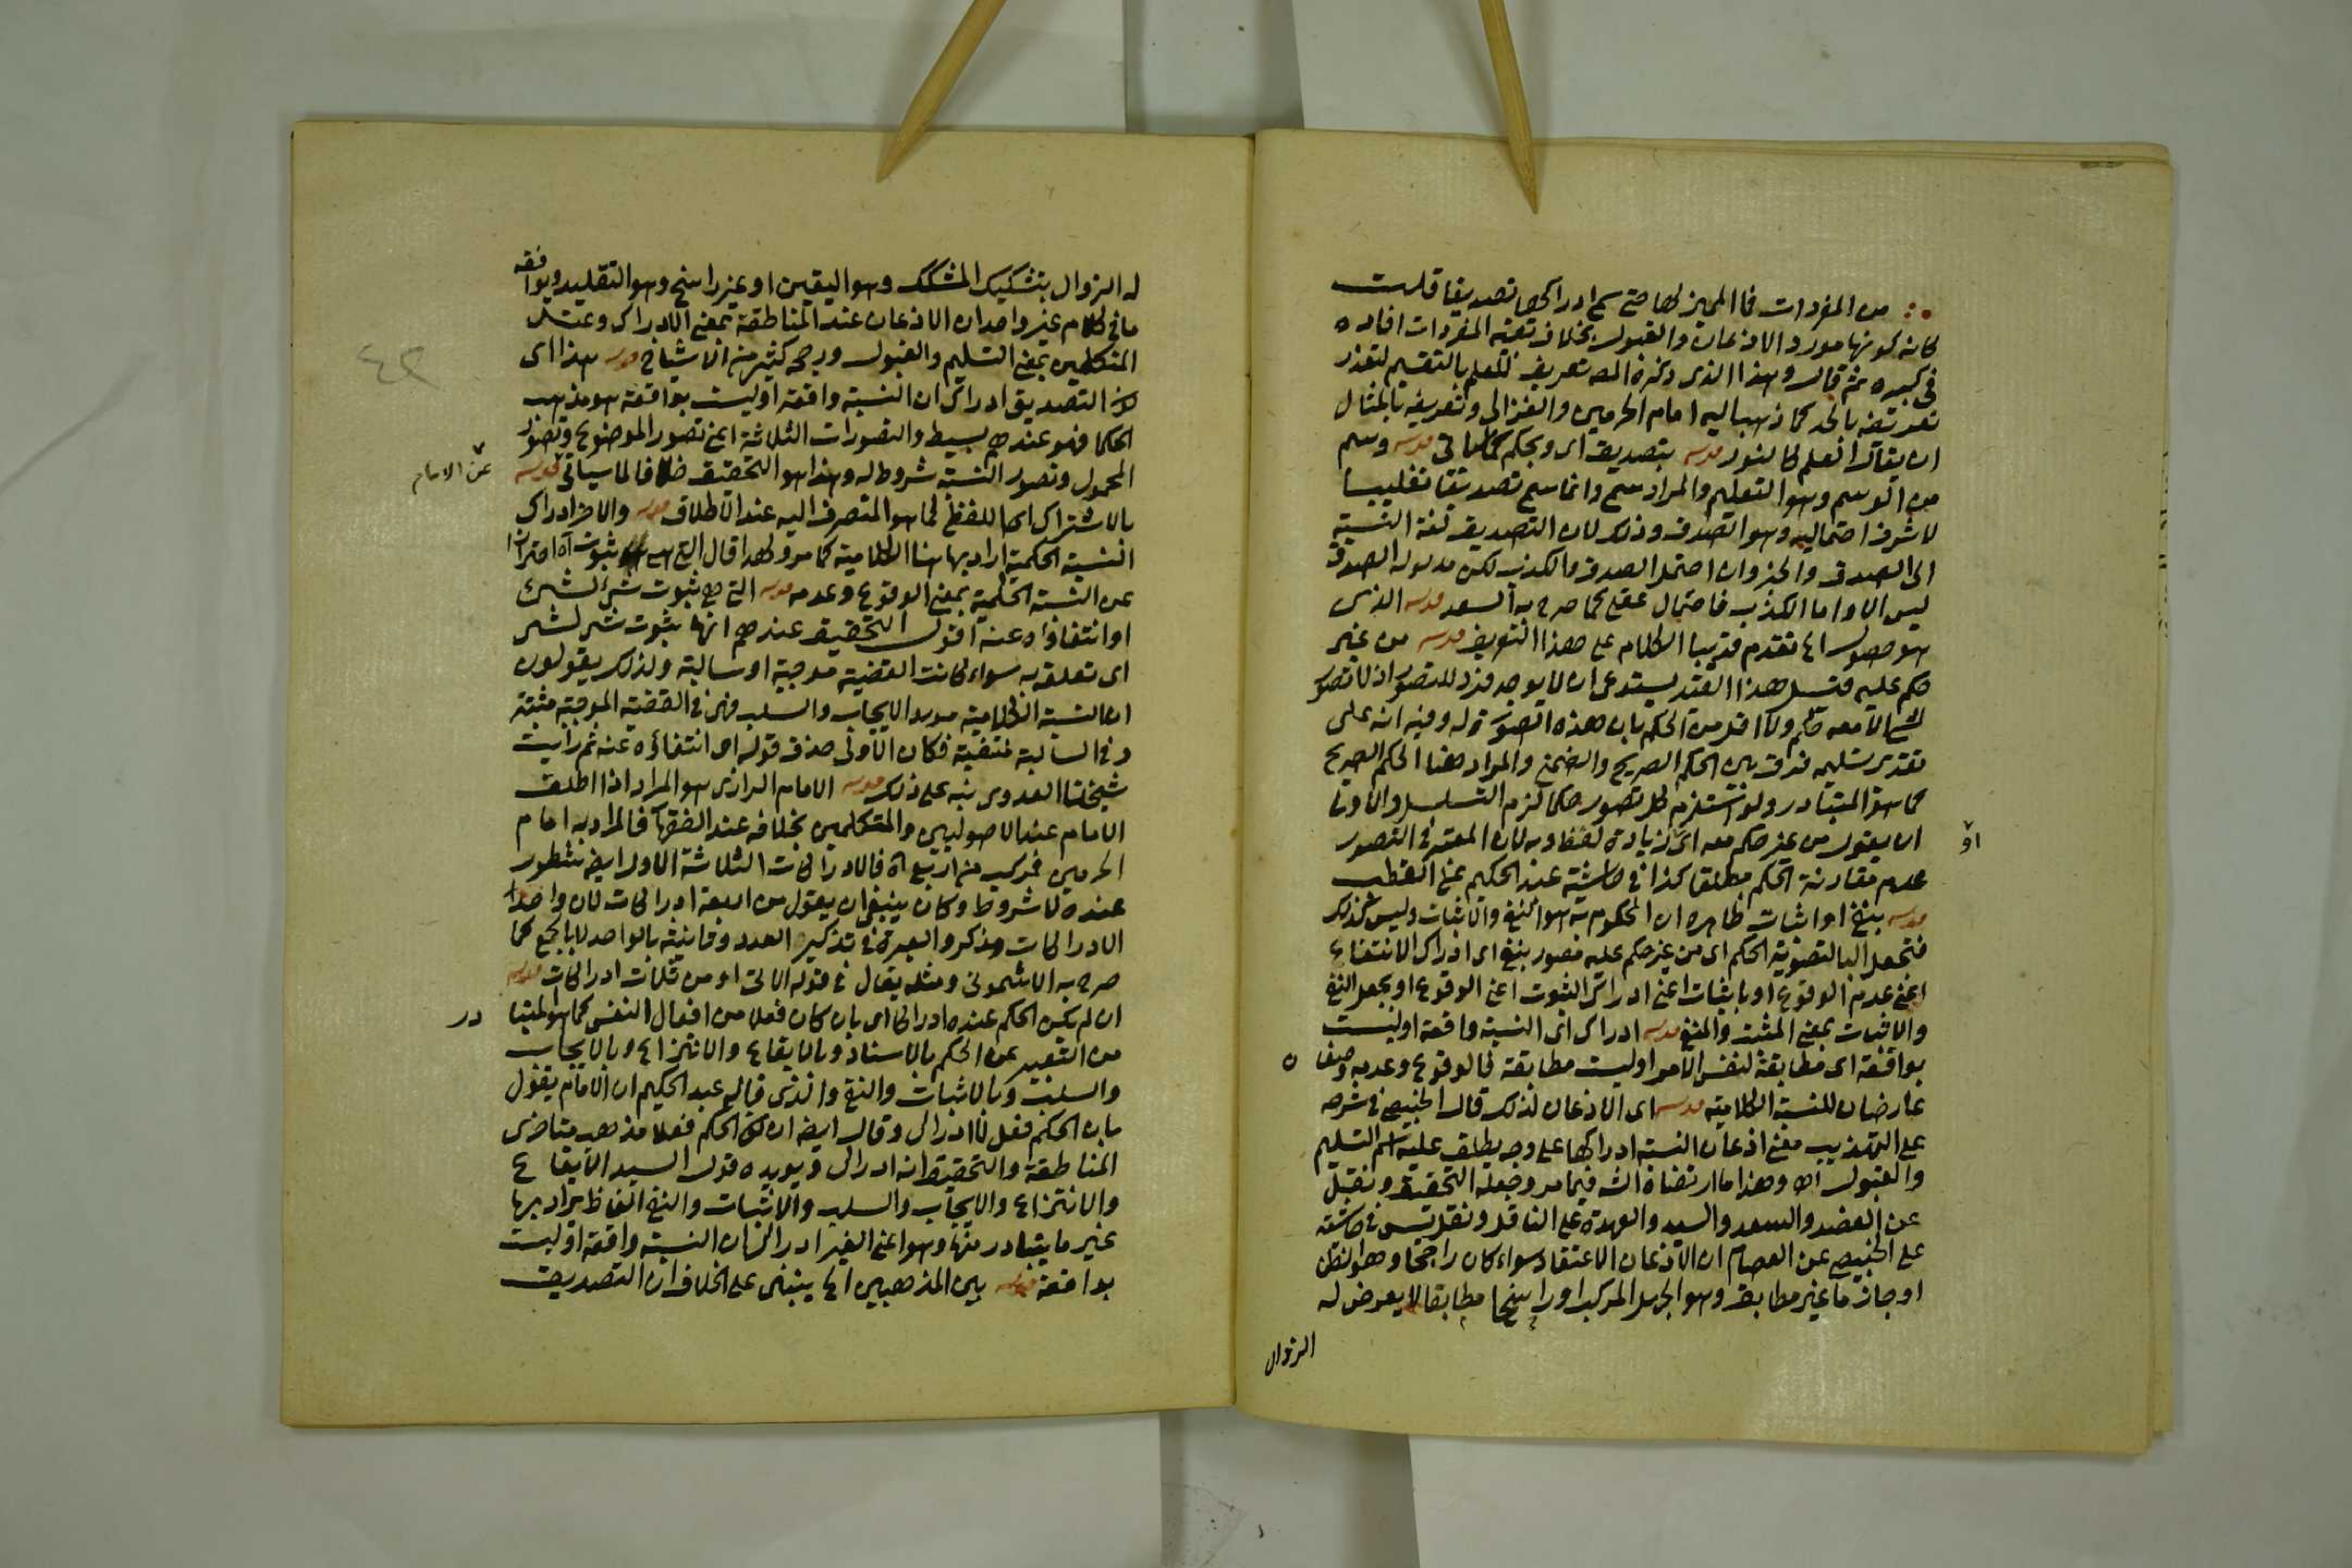 من المفردات فما المميز لها حتى سمى ادراكها تصديقا قلت
كانه كونها مورد الاذعان والقبول بخلاف بقية المفردات افاده
في كبيره ثم قال وهذا الذي ذكره المص تعريف للعلم بالتقسيم لتعذر
تعريفه بالحد كما ذهب اليه امام الحرمين والغزالي وتعريفه بالمثال
ان يقال العلم كالنور قوله بتصديق اى وبحكم كما ياتى قوله وسم
من الوسم وهو التعليم والمراد سمى وانما سمى تصديقا تغليبا
لاشرف احتماليه وهو الصدق وذلك لان التصديق لغة النسبة
الى الصدق والخبر وان احتمل الصدق والكذب لكن مدلوله الصدق
ليس الا واما الكذب فاحتمال عقلي كما صرح به السعد قوله الذى
هو حصول الخ تقدم قريبا الكلام على هذا التعريف قوله من غير
حكم عليه قيل هذا القيد يستدعى ان لا يوجد فرد للتصور اذ لا تصور
لشي الا معه حكم ولا اقل من الحكم بان هذه الصورة له وفيه انه على
تقدير تسليمه فرق بين الحكم الصريح والضمني والمراد هنا الحكم الصريح
كما هو المتبادر ولو استلزم كل تصور حكما لزم التسلسل والاولى
ان يقول من غير حكم معه اى بزيادة لفظ معه لان المعتبر فى التصور
او
عدم مقارنة الحكم مطلقا كذا في حاشية عبد الحكيم على القطب
قوله بنفى او اثبات ظاهره ان المحكوم به هو النفى والاثبات وليس كذلك
فتجعل البا لتصوير الحكم اى من غير حكم عليه مصور بنفى اى ادراك الانتفاء
اعنى عدم الوقوع او باثبات اعنى ادراك الثبوت اعنى الوقوع او يجعل النفى
والاثبات بمعنى المثبت والمنفى قوله ادراك ان النسبة واقعة او ليست
بواقعة اى مطابقة لنفس الامر او ليست مطابقة فالوقوع وعدمه وصفان
عارضان للنسبة الكلامية قوله اى الاذعان لذلك قال الخبيصى في شرحه
على التهذيب معنى اذعان النسبة ادراكها على وجه يطلق عليه اسم التسليم
والقبول اه وهذا ما ارتضاه الش فيما مر وجعله التحقيق ونقل
عن العضد والسعد والسيد والعهدة على الناقل ونقل يس في حاشيته
على الخبيصى عن العصام ان الاذعان الاعتقاد سواء كان راجحا وهو الظن
او جازما غير مطابق وهو الجهل المركب او راسخا مطابقا لا يعرض له
الزوال
له الزوال بتشكيك المشكك وهو اليقين او غير راسخ وهو التقليد ويوافقه
ما فى كلام غير واحد ان الاذعان عند المناطقة بمعنى الادراك وعند
المتكلمين بمعنى التسليم والقبول ورجحه كثير من الاشياخ قوله هذا اى
كون التصديق ادراك ان النسبة واقعة او ليست بواقعة هو مذهب
الحكما فهو عندهم بسيط والتصورات الثلاثة اعنى تصور الموضوع وتصور
المحمول وتصور النسبة شروط له وهذا هو التحقيق خلافا لما سياتي قوله
عن الامام
بالاشتراك اى اللفظى لما هو المتصرف اليه عند الاطلاق قوله والاخر ادراك
النسبة الحكمية اراد بها هنا الكلامية كما مر ولهذا قال التى هى ثبوت اه احترازا
عن النسبة الحكمية بمعنى الوقوع وعدمه قوله التى هي ثبوت شئ لشئ
او انتفاؤه عنه اقول التحقيق عندهم انها ثبوت شئ لشئ
اى تعلقه به سواء كانت القضية موجبة او سالبة ولذلك يقولون
ان النسبة الكلامية مورد الايجاب والسلب فهى فى القضية الموجبة مثبتة
وفى السالبة منفية فكان الاولى حذف قوله او انتفاؤه عنه ثم رأيت
شيخنا العدوى نبه على ذلك قوله الامام الرازى هو المراد اذا اطلق
الامام عند الاصوليين والمتكلمين بخلافه عند الفقهآ فالمراد به امام
الحرمين فمركب من اربع اه فالادراكات الثلاثة الاول ايضا شطور
عنده لا شروط وكان ينبغى ان يقول من اربعة ادراكات لان واحد
الادراكات مذكر والعبرة فى تذكير العدد وتانيثه بالواحد لا بالجمع كما
صرح به الاشمونى ومثله يقال في قوله الاتى او من ثلاث ادراكات قوله
ان لم يكن الحكم عنده ادراكا اى بان كان فعلا من افعال النفس كما هو المتبا
در
من التعبير عن الحكم بالاسناد وبالايقاع والانتزاع وبالايجاب
والسلب وبالاثبات والنفى والذى قاله عبد الحكيم ان الامام يقول
بان الحكم فعل لا ادراك وقال ايضا ان كون الحكم فعلا مذهب متاخرى
المناطقة والتحقيق انه ادراك ويويده قول السيد الايقاع
والانتزاع والايجاب والسلب والاثبات والنفى الفاظ يراد بها
غير ما يتبادر منها وهو اعنى الغير ادراك ان النسبة واقعة او ليست
بواقعة قوله بين المذهبين الخ ينبنى على الخلاف ان التصديق
٤٢